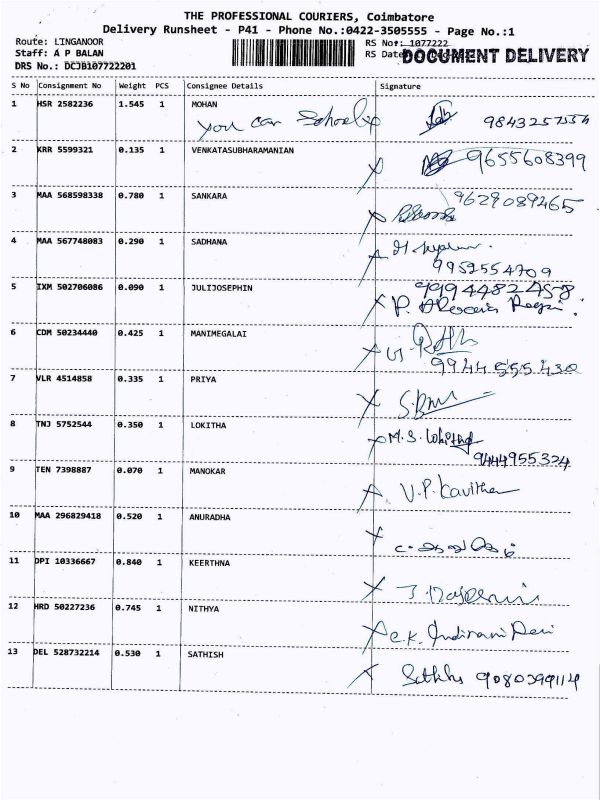 THE PROFESSIONAL COURIERS, Coimbatore
Delivery Runsheet - P41 - Phone No.:0422-3505555 - Page No.:1
Route: LINGANOOR RS No: 1077222
Staff: A P BALAN RS Date DOCUMENT DELIVERY
DRS No.: DCJB107722201
S No Consignment No Weight PCS Consignee Details Signature
1 HSR 2582236 1.545 1 MOHAN
you can
2 KRR 5599321 0.135 1 VENKATASUBHARAMANIAN 9655608399
3 MAA 568598338 0.780 1 SANKARA 9629089465
4 MAA 567748083 0.290 1 SADHANA
9952554709
5 IXM 502706086 0.090 1 JULIJOSEPHIN 9994482458
P.
6 CDM 50234440 0.425 1 MANIMEGALAI
9944 555 430
7 VLR 4514858 0.335 1 PRIYA
8 TNJ 5752544 0.350 1 LOKITHA M.S. Lokitha
9444955324
9 TEN 7398887 0.070 1 MANOKAR
V.P. Kavitha
10 MAA 296829418 0.520 1 ANURADHA
11 DPI 10336667 0.840 1 KEERTHNA
12 HRD 50227236 0.745 1 NITHYA
C.K. Indirani Devi
13 DEL 528732214 0.530 1 SATHISH